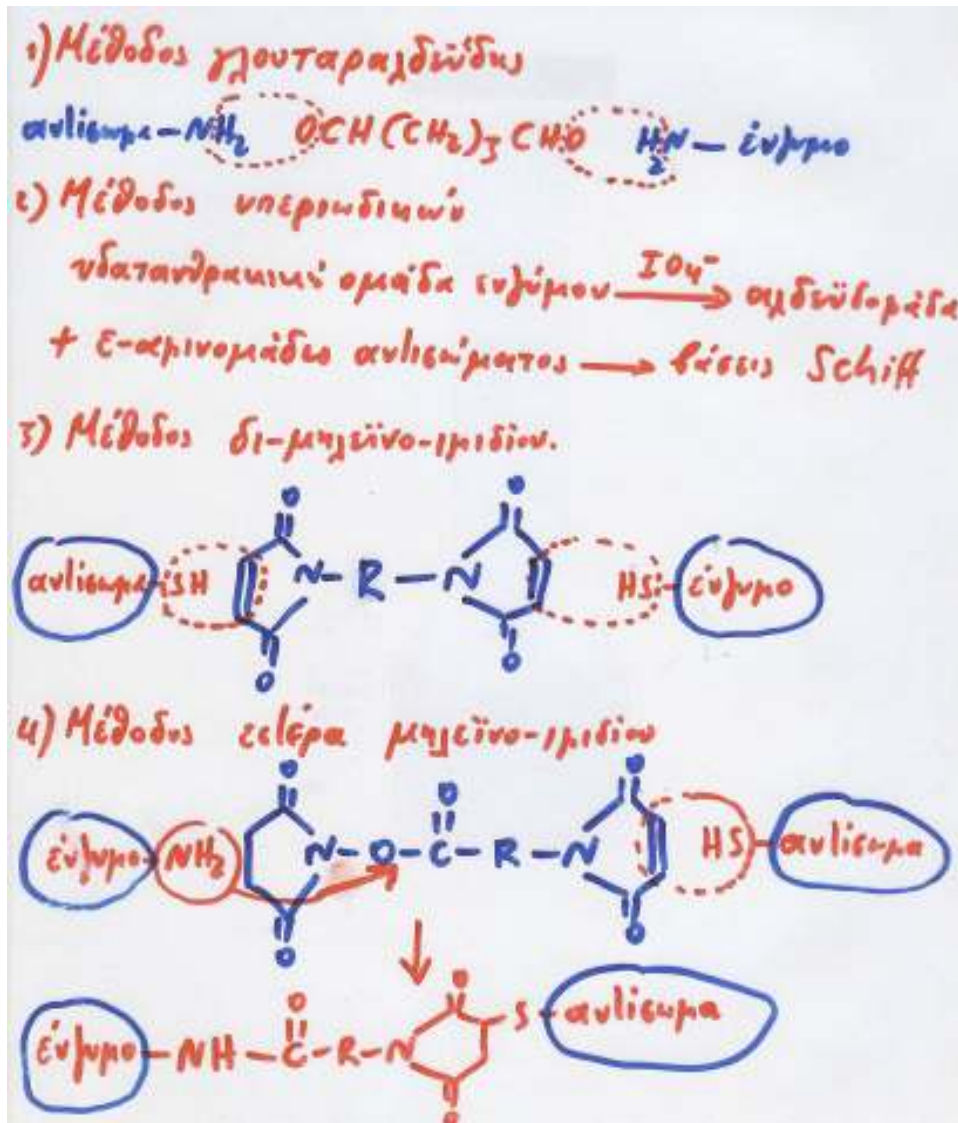 1) Μέθοδος γλουταραλδεΰδης
αντίσωμα-NH₂ OCH(CH₂)₃CHO H₂N-ένζυμο
2) Μέθοδος υπεριωδικού
υδατανθρακική ομάδα ενζύμου IO₄⁻ → αλδεϋδομάδα
+ ε-αμινομάδες αντισώματος → βάσεις Schiff
3) Μέθοδος δι-μηλεϊνο-ιμιδίου.
O O
αντίσωμα-SH N-R-N HS-ένζυμο
O O
4) Μέθοδος εστέρα μηλεϊνο-ιμιδίου
O O O
ένζυμο-NH₂ N-O-C-R-N HS-αντίσωμα
O O
O O S-αντίσωμα
ένζυμο-NH-C-R-N
O